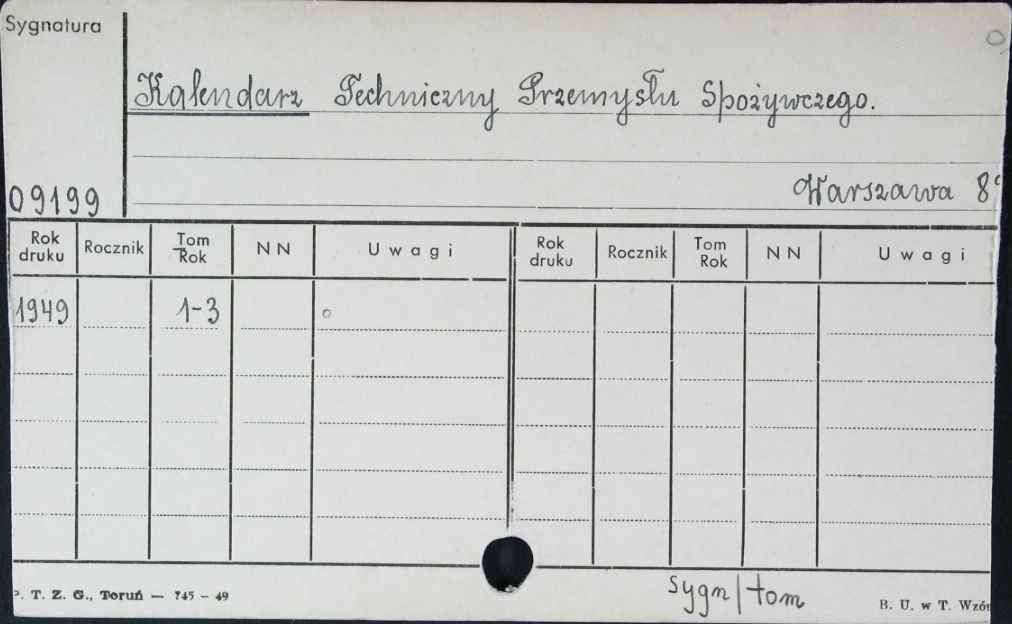 Sygnatura
Kalendarz Techniczny Przemysłu Spożywczego.
09199
Warszawa 8°
Rok druku Rocznik Tom Rok NN Uwagi Rok druku Rocznik Tom Rok NN Uwagi
1949 1-3 o
sygn/tom
P. T. Z. G., Toruń — 745 – 49
B. U. w T. Wzór